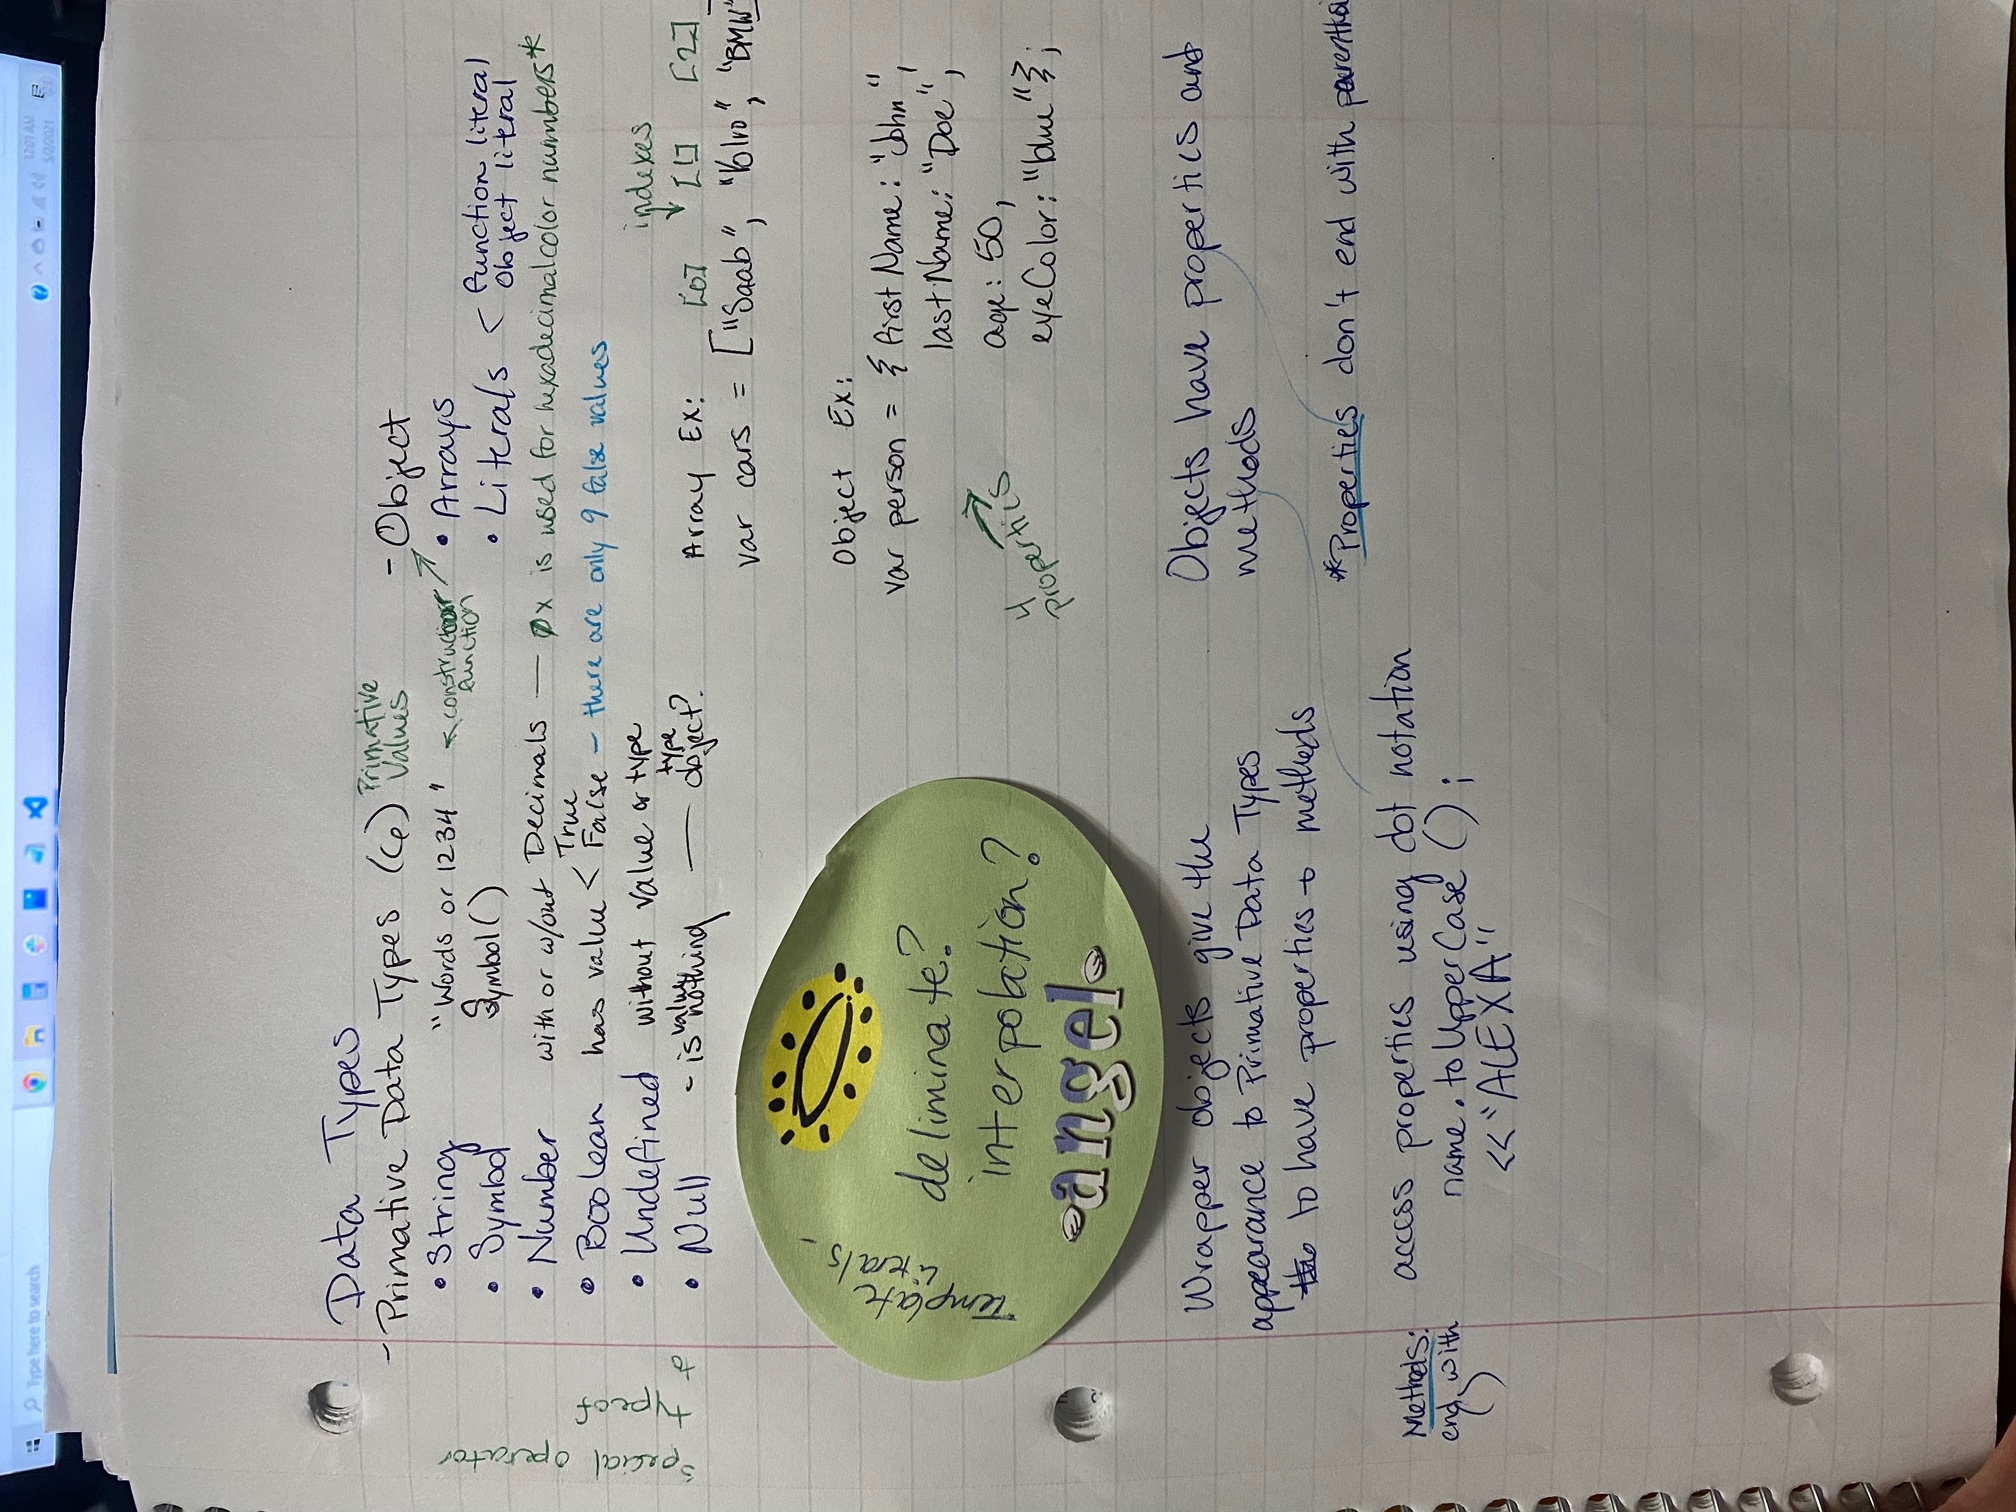 Type here to search
12:01 AM
5/2/2021
Data Types
- Primative Data Types (6) Primative Values
• String "Words or 1234" < constructor function
• Symbol Symbol()
• Number with or w/out Decimals — 0x is used for hexadecimal color numbers*
• Boolean has value < True False - there are only 9 false values
• Undefined without value or type
• Null - is value nothing — type object?
Special operator
typeof
to
- Object
• Arrays
• Literals < function literal
Object literal
indexes
Array Ex: [0] [1] [2]
var cars = ["Saab", "Volvo", "BMW"
Object Ex:
var person = { firstName: "John",
lastName: "Doe",
age: 50,
eyeColor: "blue"};
4 properties
Template Literals -
deliminate?
interpolation?
angel
Wrapper objects give the
appearance to Primative Data Types
to have properties + methods
Objects have properties and
methods
*Properties don't end with
access properties using dot notation
name.toUpperCase();
<<"ALEXA"
Methods:
end with
()